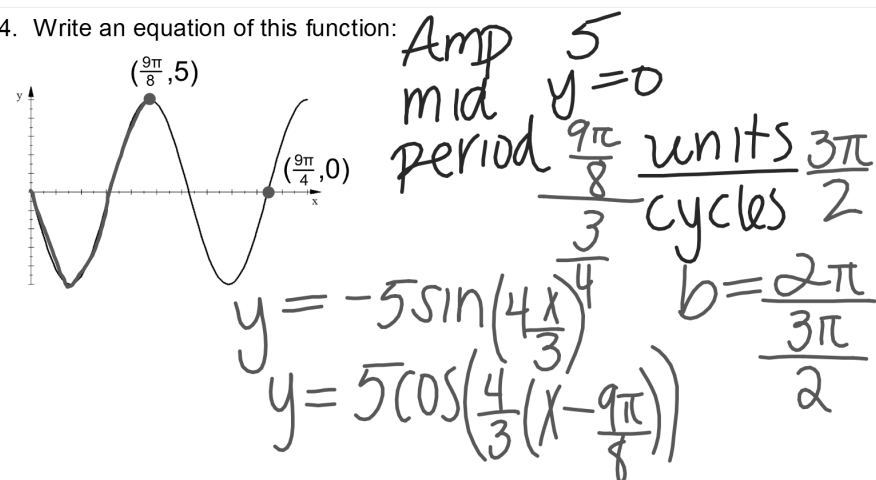 4. Write an equation of this function:
Amp 5
(9π/8 ,5)
y
mid y=0
period (9π/8)/(3/4) units/cycles 3π/2
(9π/4 ,0)
x
b=2π/(3π/2)
y=-5sin(4x/3)
y=5cos(4/3(x-9π/8))